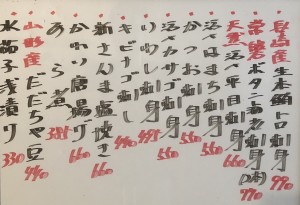 長崎産生本鮪トロ刺身 990
常磐ボタン海老刺身
天然活〆平目刺身 660
活〆はまち刺身 550
かつお刺身 550
活〆カサゴ刺身 550
いわし刺身 495
キビナゴ刺 440
新さんま塩焼き 660
かわり唐揚げ
あら煮 385
山形産だだちゃ豆 440
水茄子浅漬り 330